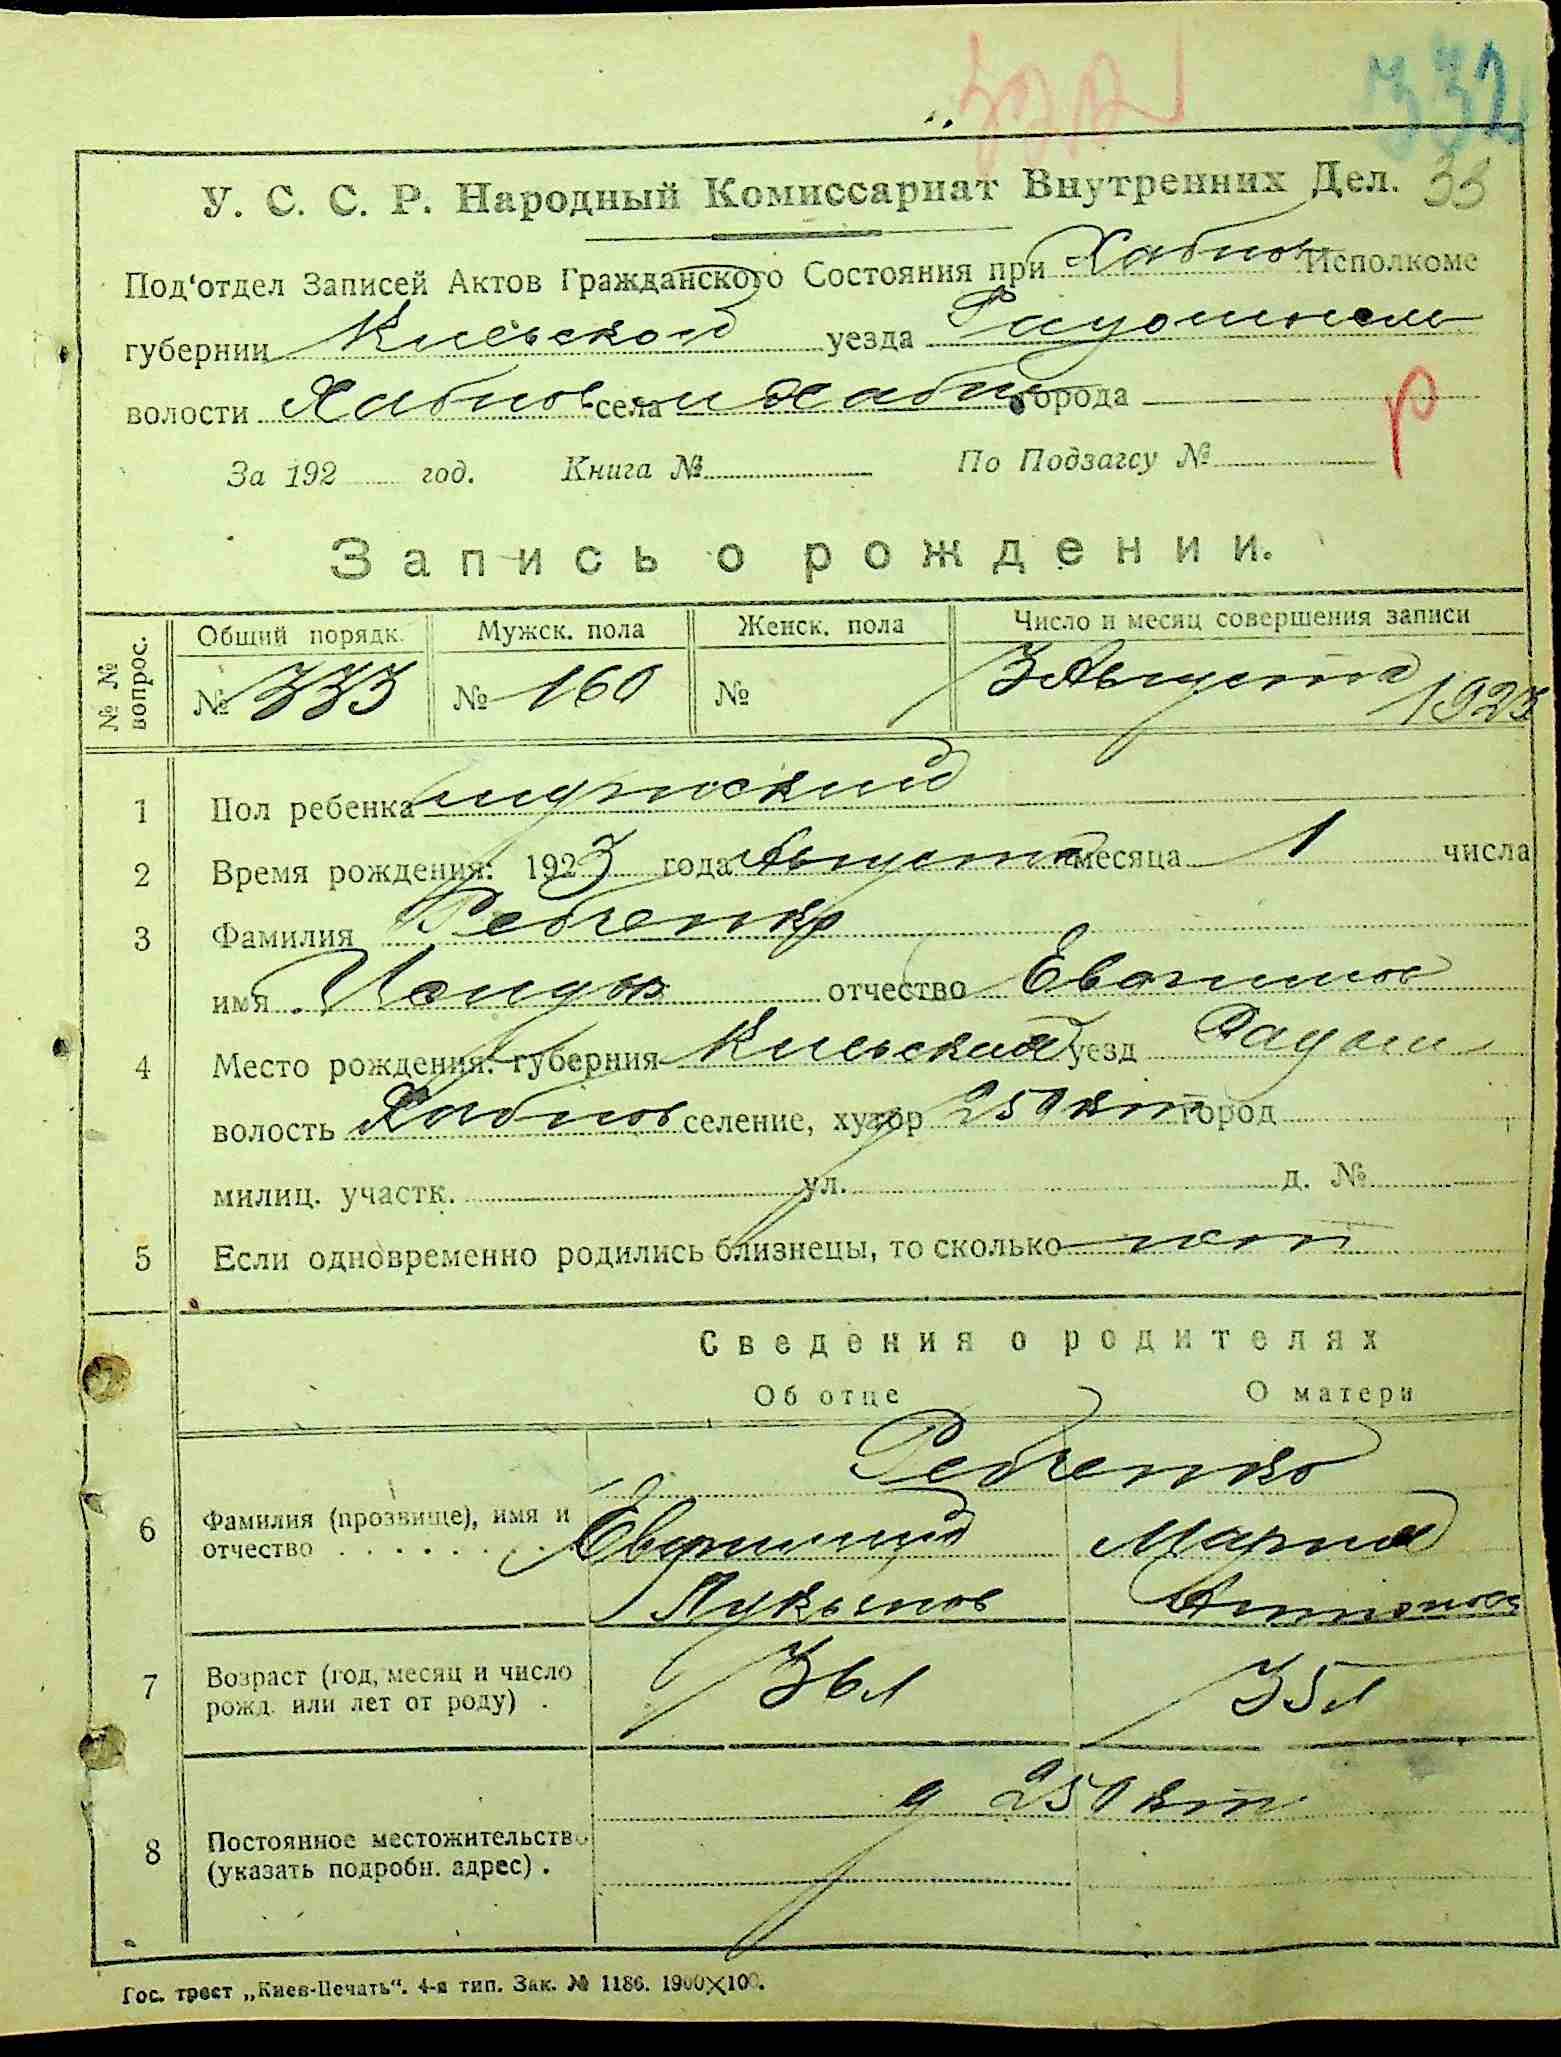 332
33
У. С. С. Р. Народный Комиссариат Внутренних Дел.
Под'отдел Записей Актов Гражданского Состояния при Хабнов Исполкоме
губернии Киевской уезда Радомысль
волости Хабнов села м Хабно города
За 192 год. Книга № По Подзагсу №
Запись о рождении.
№ № вопрос. Общий порядк. Мужск. пола Женск. пола Число и месяц совершения записи
№ 333 № 160 № 3 Августа 1923
1 Пол ребенка мужской
2 Время рождения: 1923 года Августа месяца 1 числа
3 Фамилия Редченко
имя отчество Евдоким
4 Место рождения: губерния Киевская уезд Радом
волость Хабнов селение, хутор город
милиц. участк. ул. д. №
5 Если одновременно родились близнецы, то сколько нет
Сведения о родителях
Об отце О матери
Редченко
6 Фамилия (прозвище), имя и отчество . . . . . . . Мария
Лукьянов Антонов
7 Возраст (год, месяц и число рожд. или лет от роду) . 36 л 35 л
8 Постоянное местожительство (указать подробн. адрес) .
Гос. трест „Киев-Печать“. 4-я тип. Зак. № 1186. 1900×100.